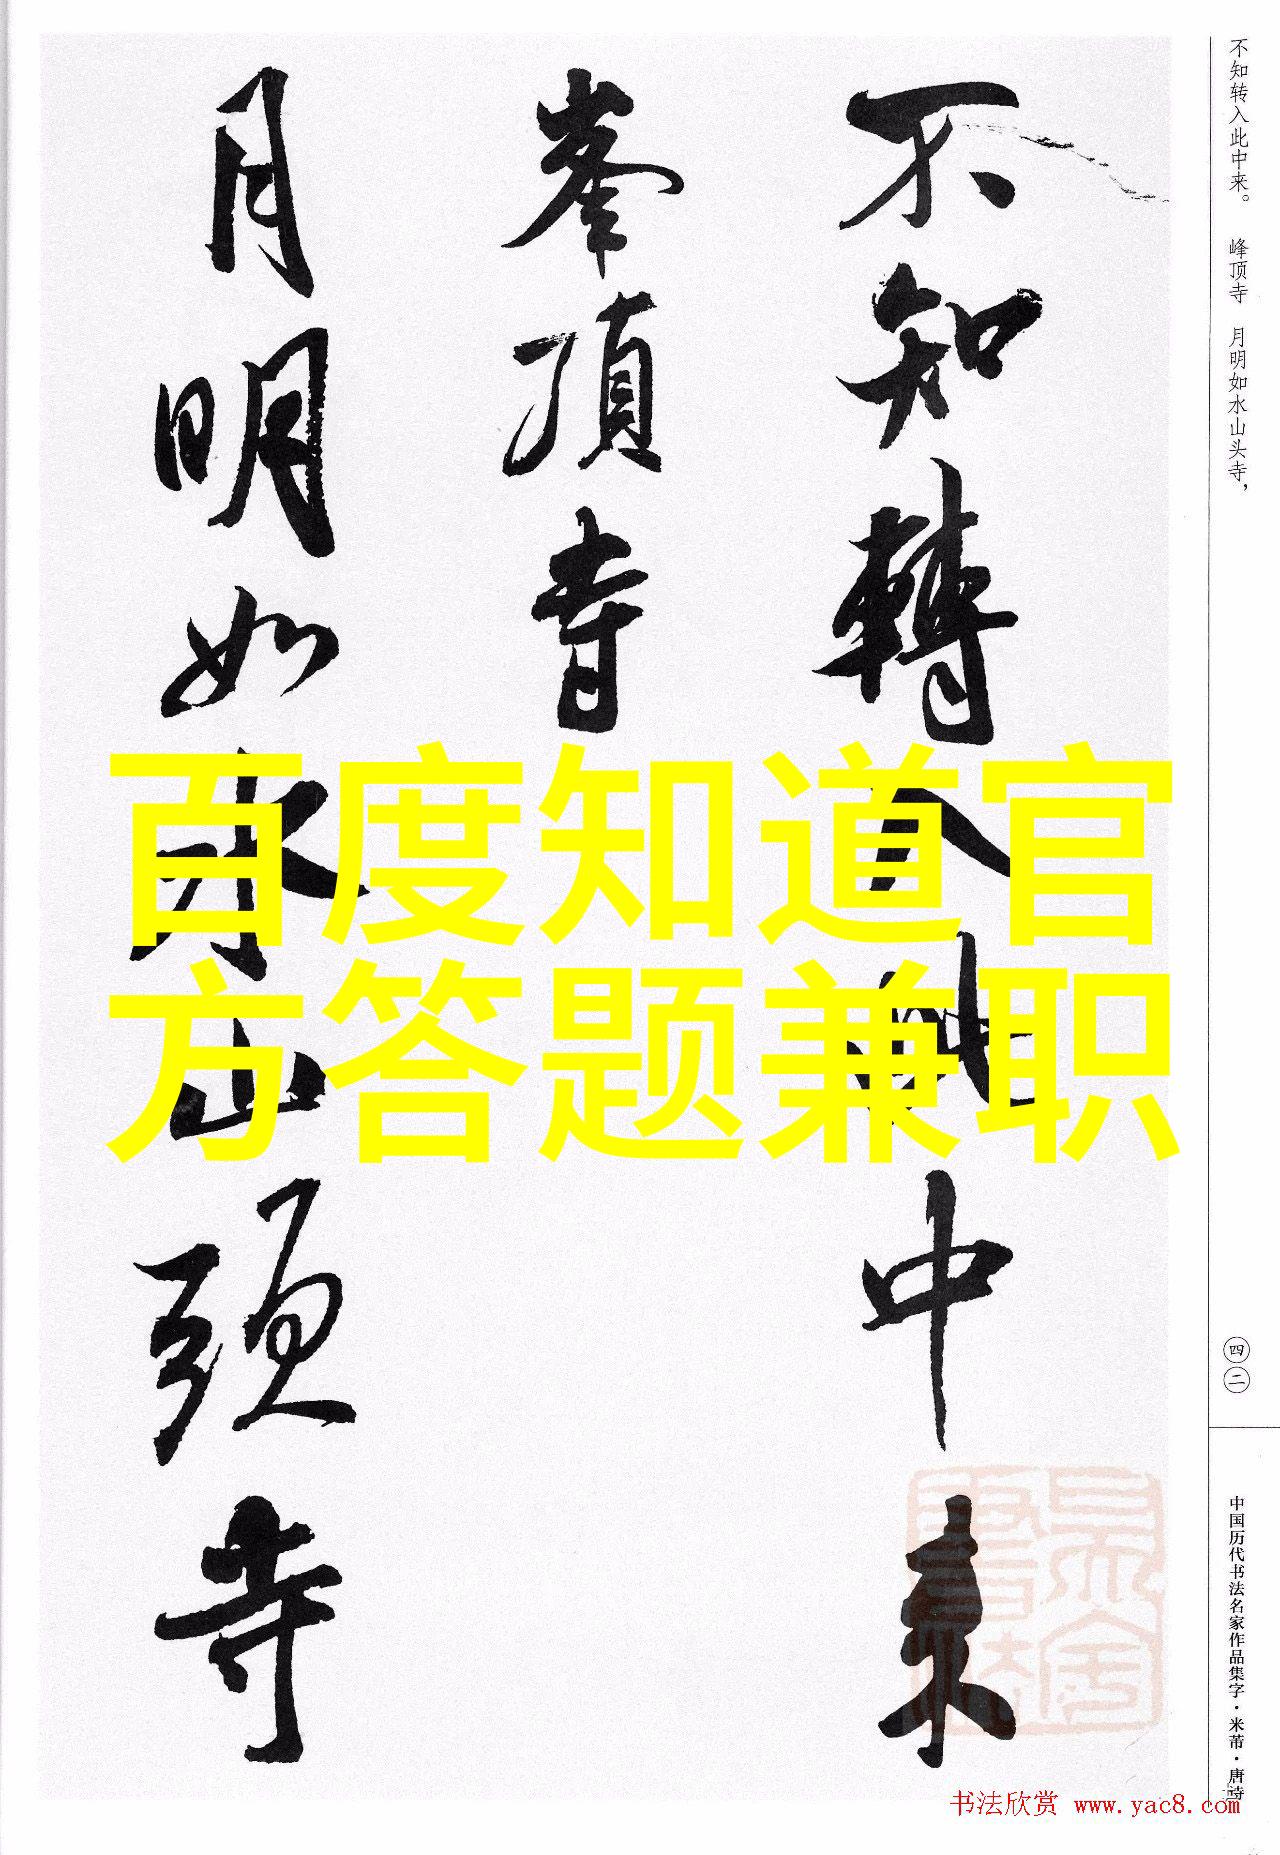 不知轉入此中来
峯頂寺
月明如水山頭寺
百度知道官
方答题兼职
不知转入此中来。 峰顶寺 月明如水山头寺，
四二
中国历代书法名家作品集字·米芾·唐诗
书法欣赏 www.yac8.com